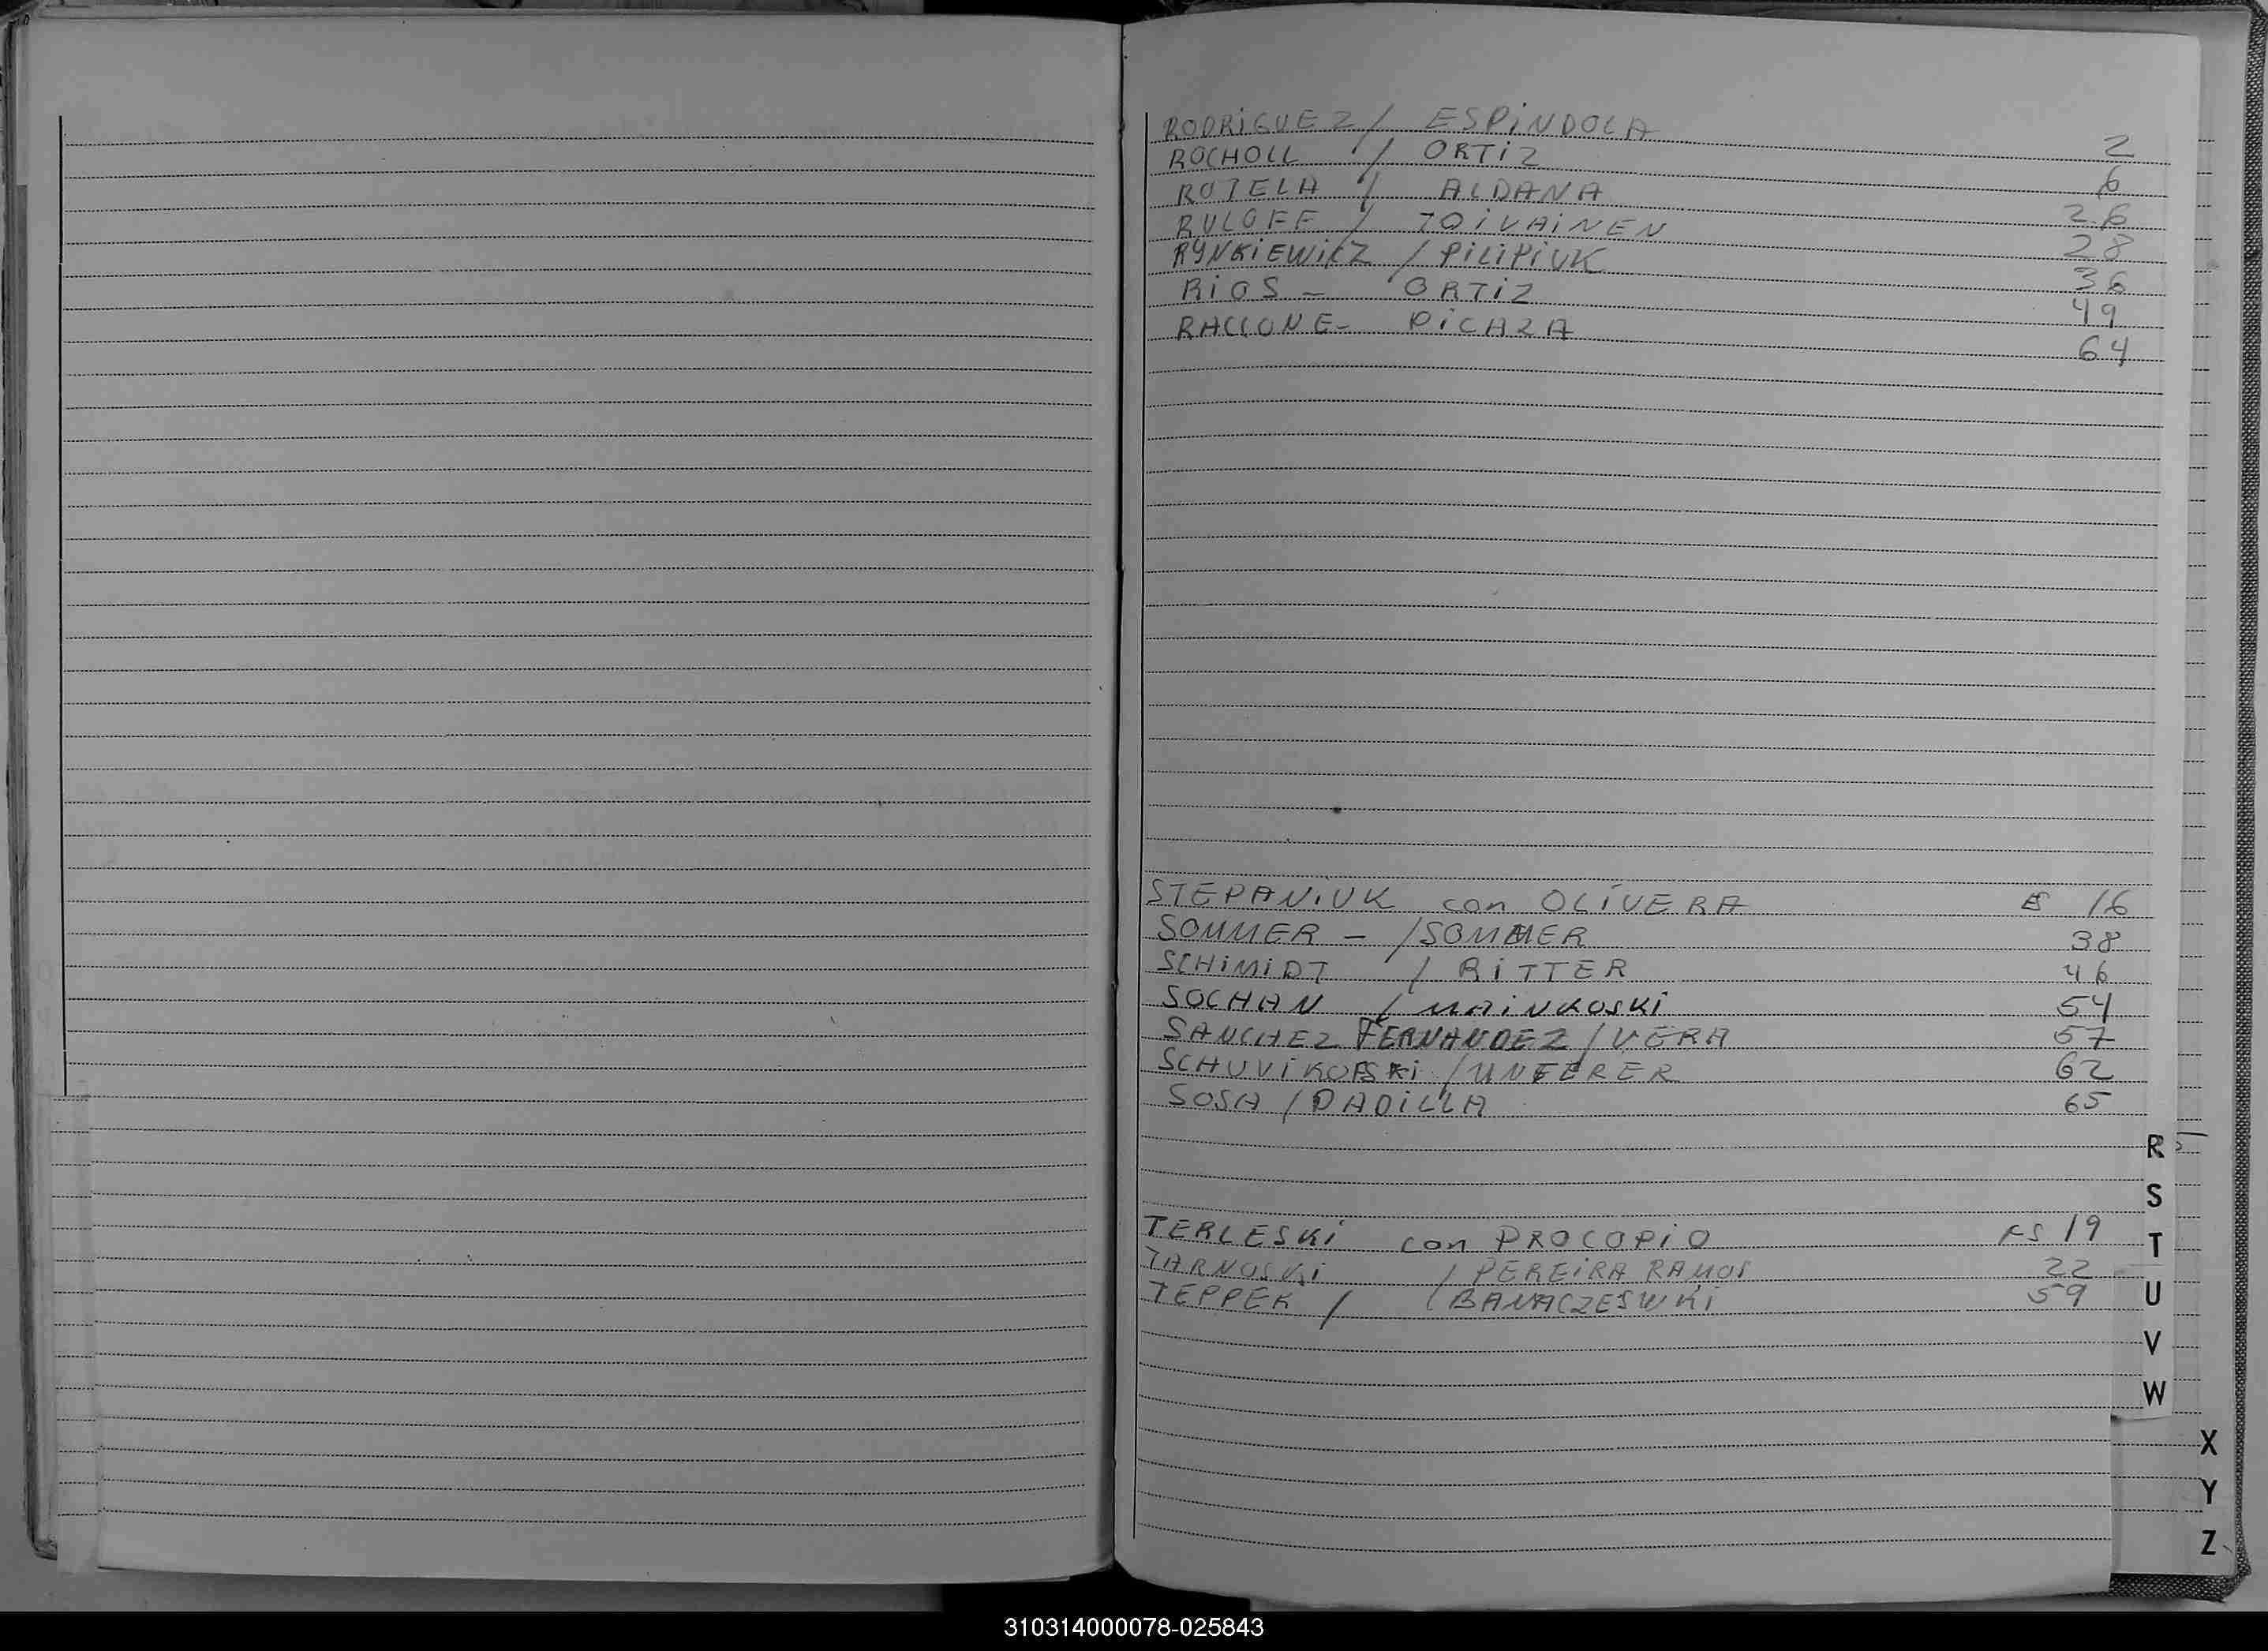 RODRIGUEZ / ESPINDOLA 2
ROCHOLL / ORTIZ 6
ROTELA / ALDANA 26
RULOFF / TOIVAINEN 28
RYNKIEWICZ / PILIPIUK 36
RIOS - ORTIZ 49
RACCONE - PICAZA 64
STEPANIUK con OLIVERA 16
SOMMER - / SOMMER 38
SCHIMIDT / RITTER 46
SOCHAN / MAINKOSKI 54
SANCHEZ FERNANDEZ / VERA 57
SCHUVIKOFSKI / UNFERER 62
SOSA / PADILLA 65
R
S
TERLESKI con PROCOPIO FS 19
T
TARNOSKI / PEREIRA RAMOS 22
TEPPEK / BANACZESWKI 59
U
V
W
X
Y
Z
310314000078-025843